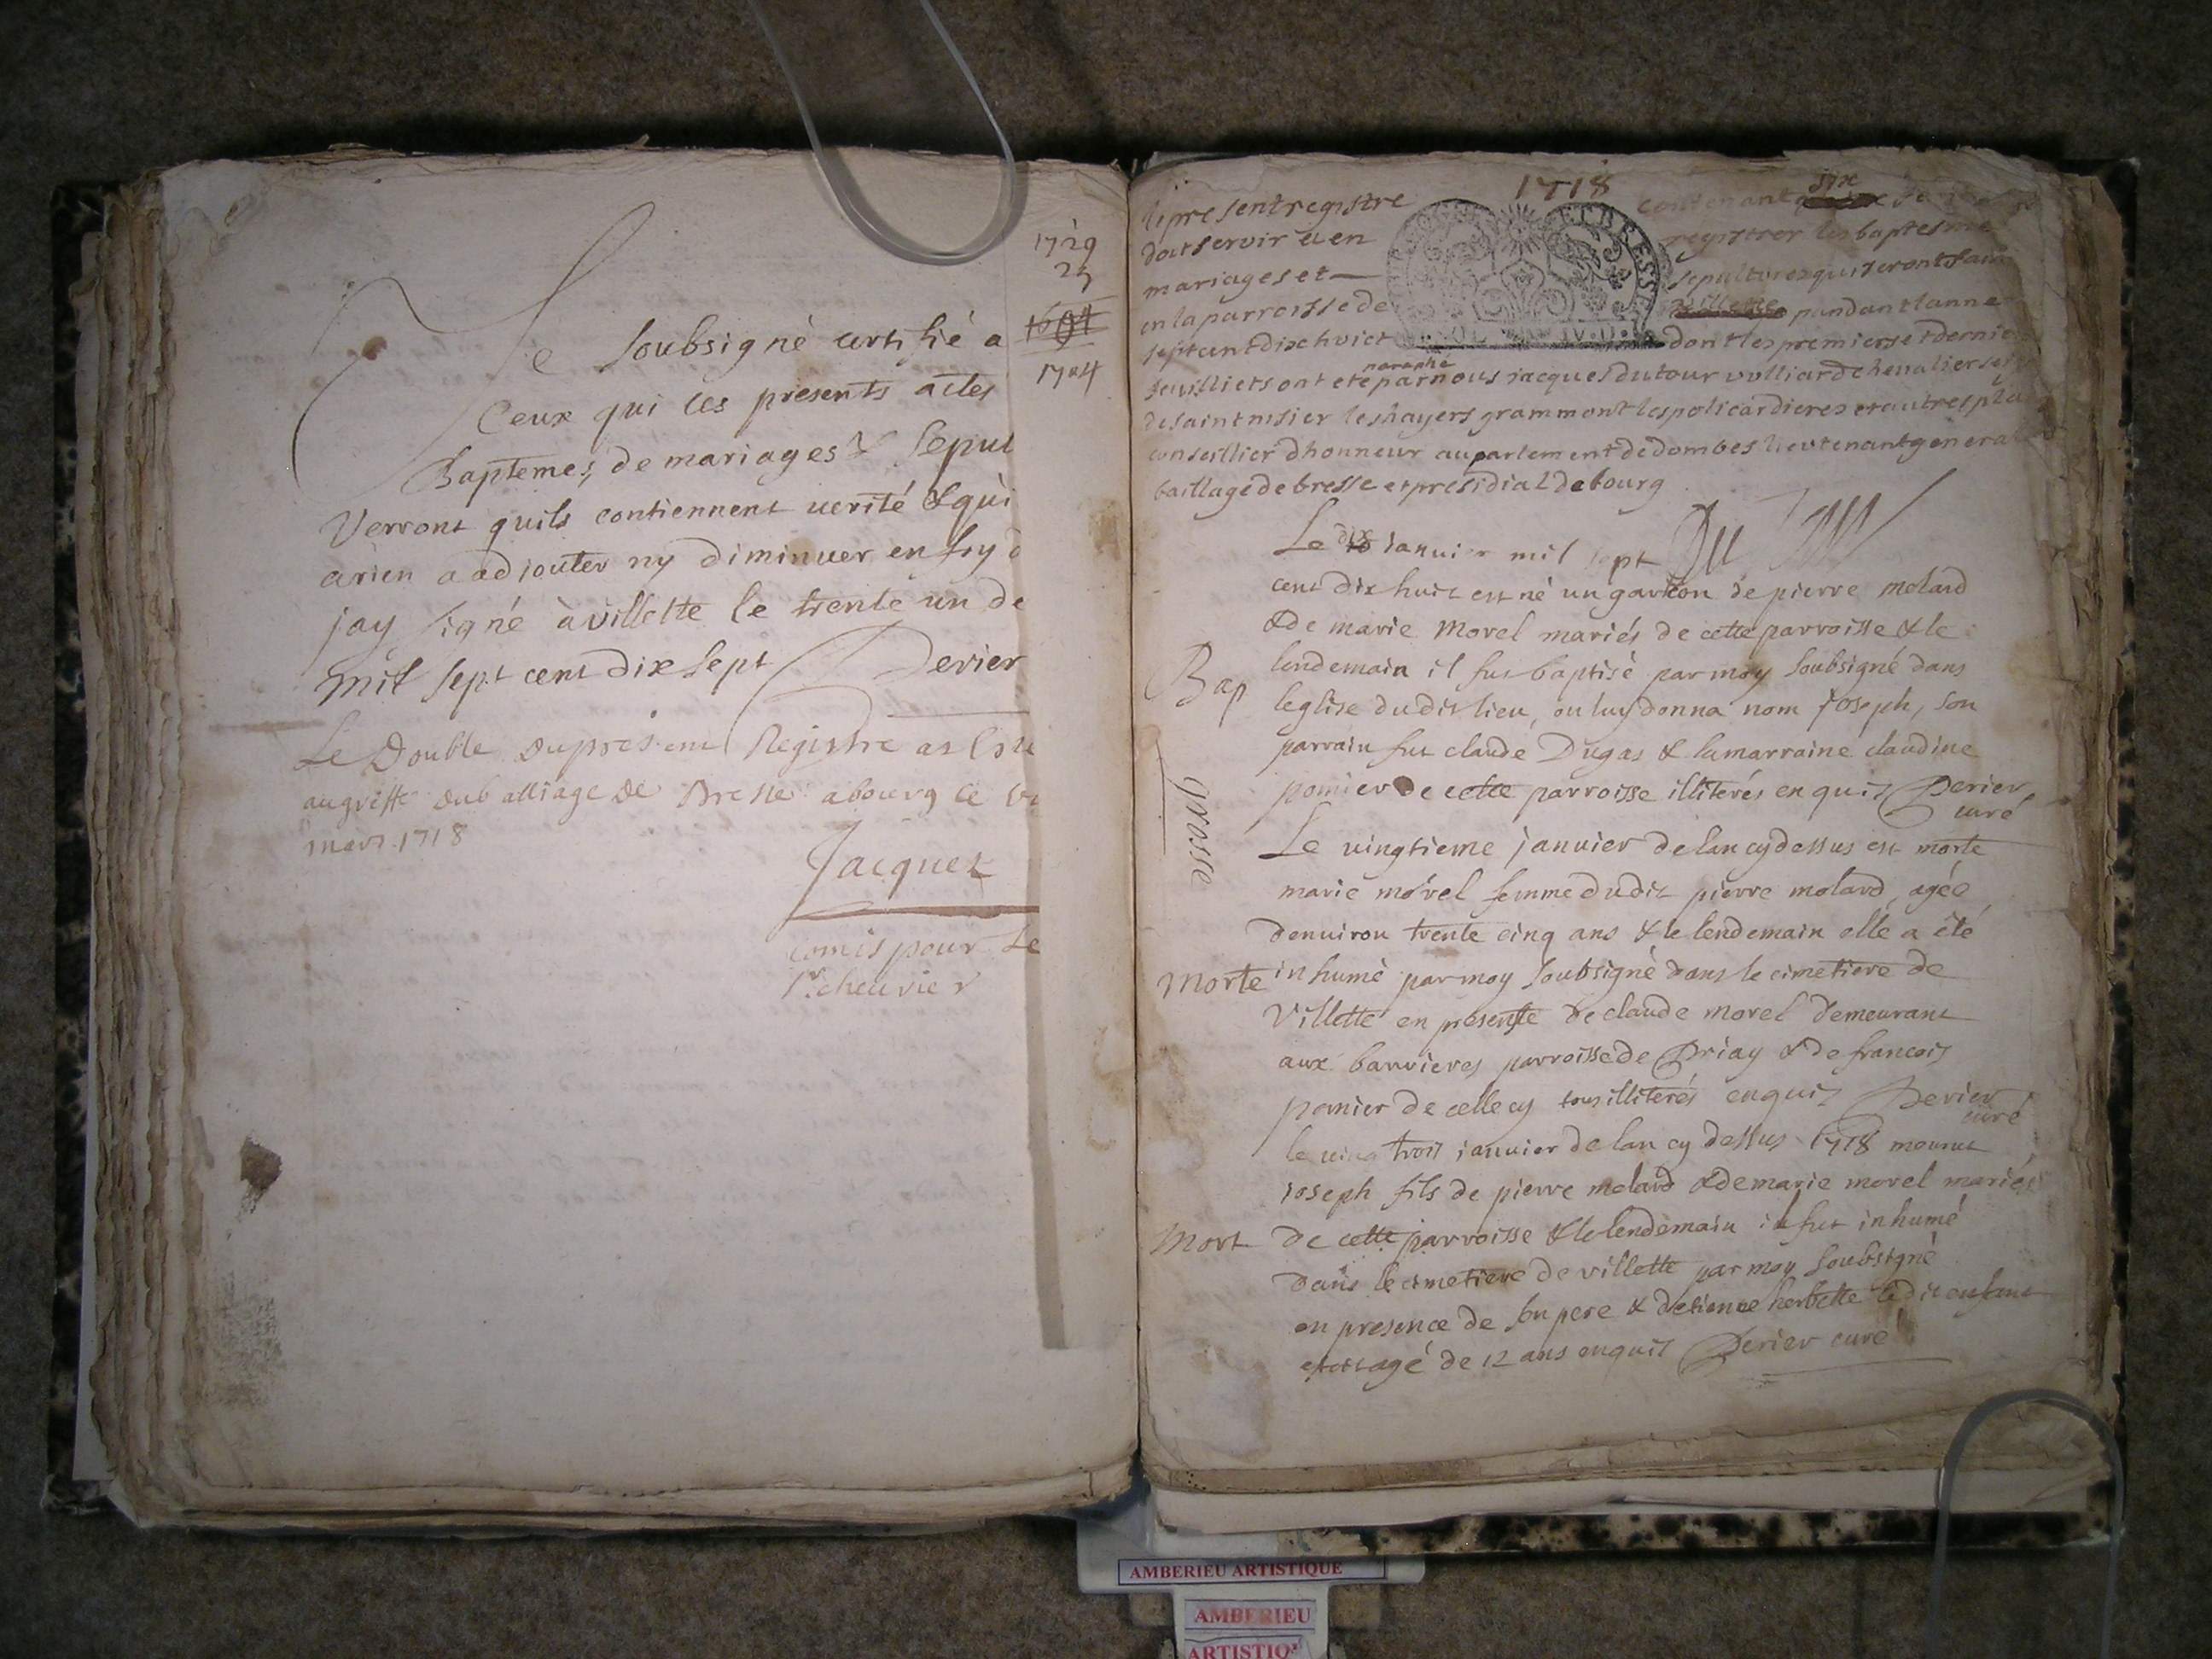 Je soubsigné certifié a
Ceux qui ces presents actes
Baptemes, de mariages & sepul
Verront quils contiennent verité & qui
arien a adjouter ny diminuer en foy d
jay signé à villette le trente un de
mil sept cent dix sept Derier
Le Double du present Registre a
au greffe du balliage de Bresse abourg ce
mars 1718
Jacquet
comis pour Le
Sr. cheuvier
1729
25
1604
1704
1718
le present registre contenant six
doit servir a en registrer les baptesme
mariages et sepultures qui seront fai
en la parroisse de villette pandant lanne
sept cent dix huict dont les premiers et dernie
feuilliets ont eté paraphé par nous jacques du tour vulliard chevalier sei
de saint nisier les hayers grammont les policardieres et autres pla
conseillier dhonneur au parlement de dombes lieutenant general
baillage de bresse et presidial de bourg
Le dix Ianuier mil sept Du Tour
cent dix huit est né un garcon de pierre molard
& de marie Morel mariés de cette parroisse & le
Bap lendemain il fut baptisé par moy soubsigné dans
leglise dudit lieu, on luy donna nom joseph, son
parrain fut claude Dugas & la marraine claudine
grosse
pomier de cette parroisse illiterés enquis Derier
curé
Le vingtieme januier de lan cy dessus est morte
marie morel femme dudit pierre molard, agée
denuiron trente cinq ans & le lendemain elle a été
Morte inhumé par moy soubsigné dans le cimetiere de
Villette en presente de claude morel demeurant
aux barrieres parroisse de Priay & de francois
pomier de celle cy tous illiterés enquis Derier
curé
le vingt trois januier de lan cy dessus 1718 mourut
ioseph fils de pierre molard & de marie morel mariés
Mort de cette parroisse & le lendemain il fut inhumé
dans le cimetiere de villette par moy soubsigné
en presence de son pere & detienne herbette ledit enfant
agé de 12 ans enquis Derier curé
AMBERIEU ARTISTIQUE
AMBERIEU
ARTISTIQU